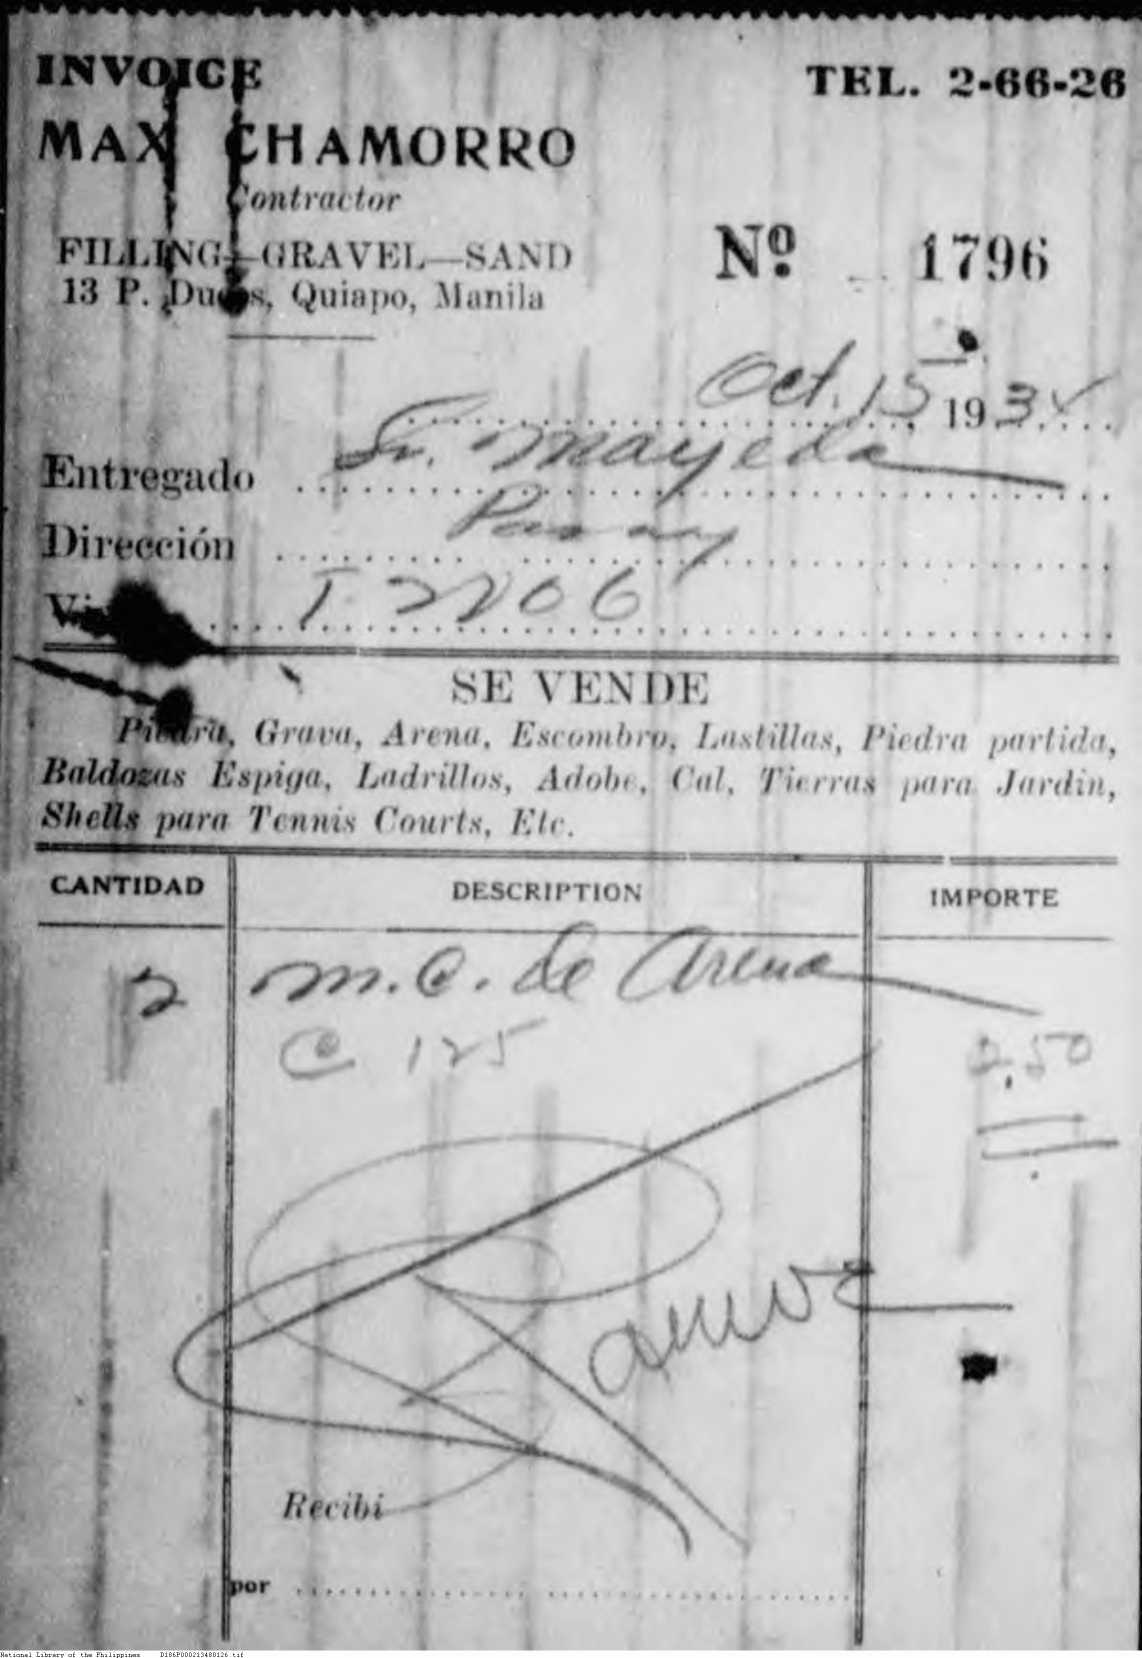 INVOICE TEL. 2-66-26
MAX CHAMORRO
Contractor
FILLING—GRAVEL—SAND
Nº 1796
13 P. Ducos, Quiapo, Manila
Oct. 15 1934
Entregado Sr. Mayeda
Dirección Pasay
T 2206
SE VENDE
Piedra, Grava, Arena, Escombro, Lastillas, Piedra partida,
Baldozas Espiga, Ladrillos, Adobe, Cal, Tierras para Jardin,
Shells para Tennis Courts, Etc.
CANTIDAD DESCRIPTION IMPORTE
2 m.c. de Arena
C 125 2.50
Recibi
por
National Library of the Philippines D186P000213480126.tif